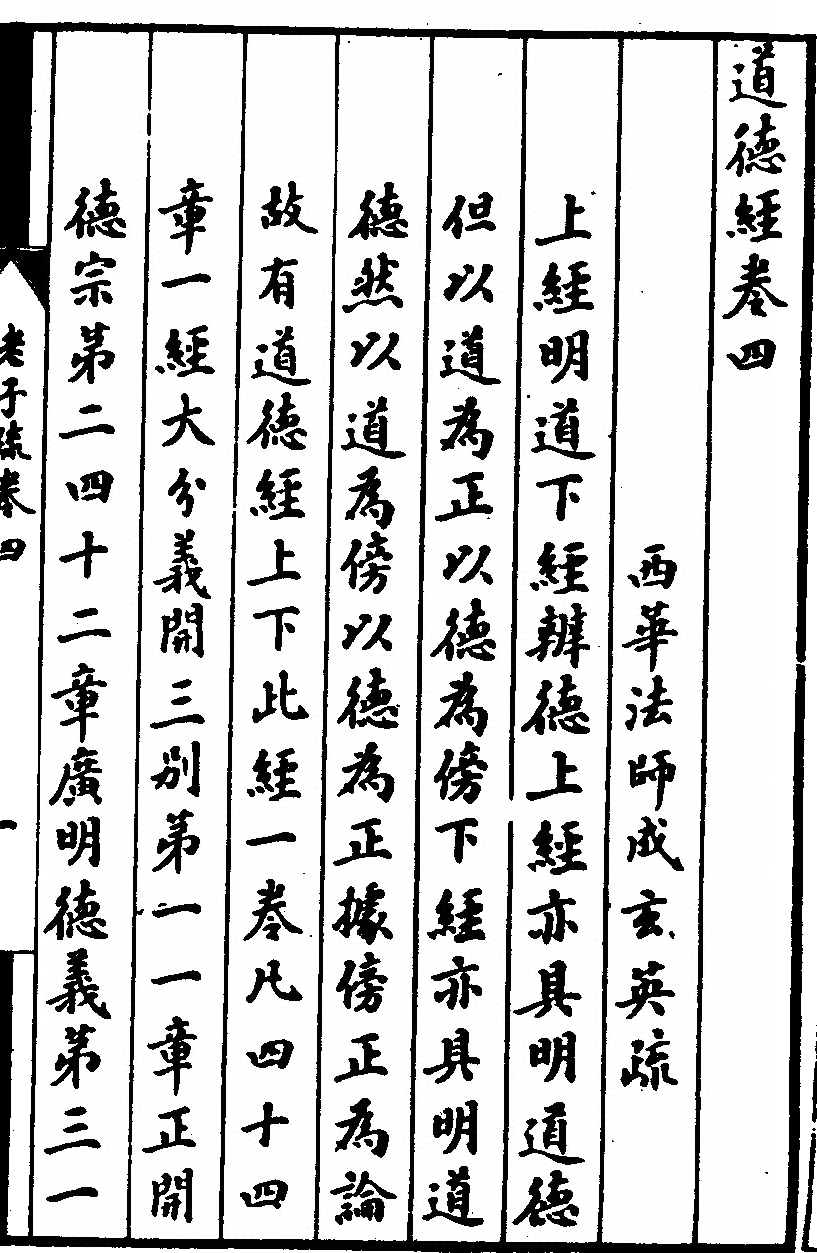 道德經卷四
西華法師成玄英疏
上經明道下經辨德上經亦具明道德
但以道為正以德為傍下經亦具明道
德然以道為傍以德為正據傍正為論
故有道德經上下此經一卷凡四十四
章一經大分義開三別第一一章正開
德宗第二四十二章廣明德義第三一
老子疏卷四
一